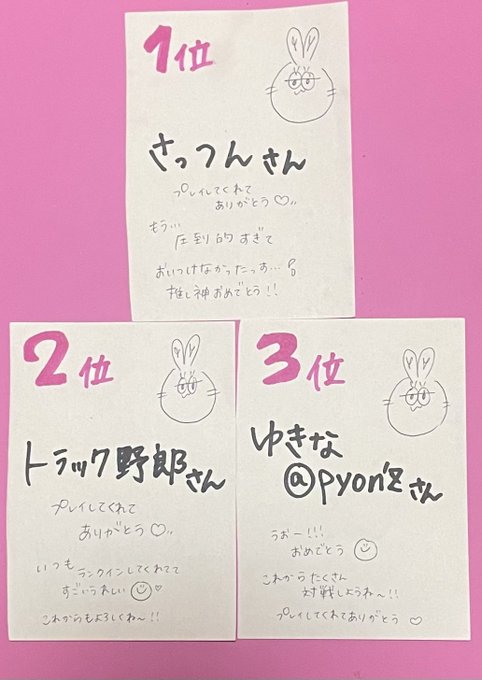 1位
さっつんさん
プレイしてくれて
ありがとう♡〃
もう…
圧倒的すぎて
おいつけなかったっす…
推し神おめでとう!!
2位
トラック野郎さん
プレイしてくれて
ありがとう♡〃
いつも
ランクインしてくれてて
すごいうれしい
これからもよろしくね〜!!
3位
ゆきな
@pyon'zさん
うおー!!!
おめでとう
これからたくさん
対戦しようね〜!!
プレイしてくれてありがとう♡